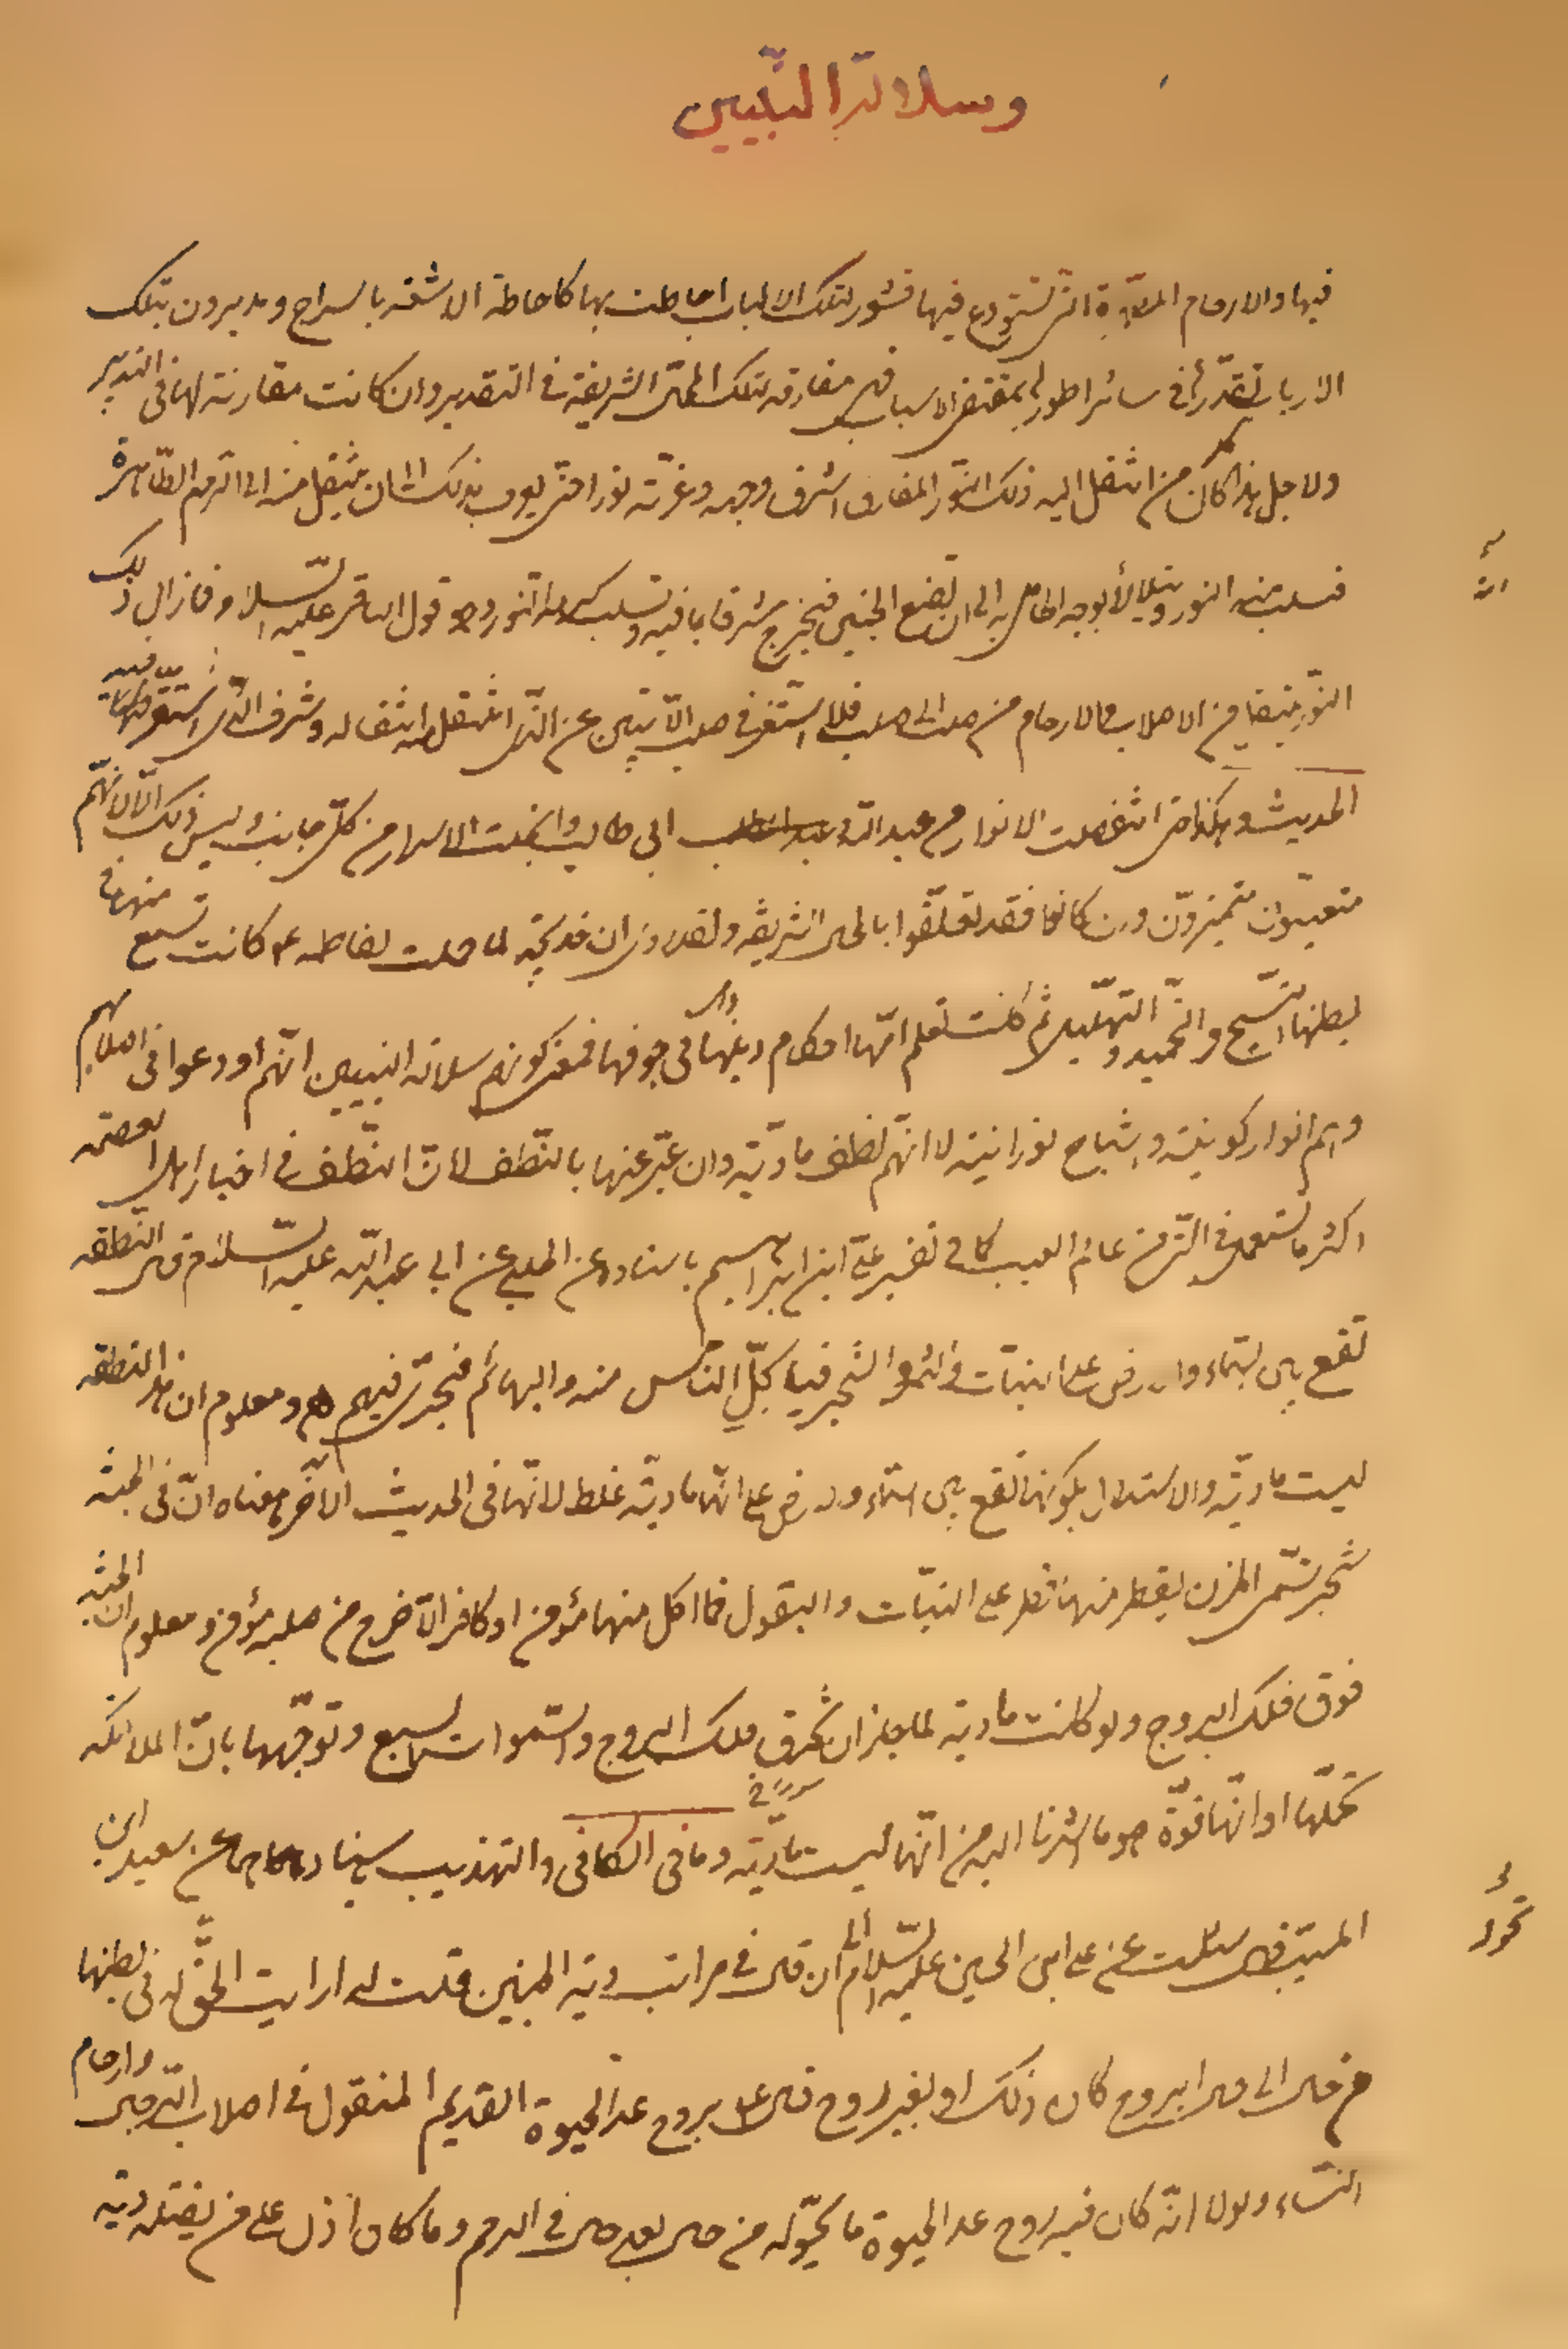 وسلالة النبيين
فيها والارحام المطهرة التى تستودع فيها قشور لتلك الالباب احاطت بها كاحاطة الاشعه بالسراج ومديرون بتلك
الارباب تقدّر فى سائر اطوارها بمقتضى الاسباب فهى مفارقه لتلك المحال الشريفة فى التقدير وان كانت مقارنة لها فى التدبير
ولاجل هذا كان من انتقل اليه ذلك النور المفارق اشرف وجهه وغرّته نورا حتى يعرف بذلك الشان ينتقل منه الى الرحم الطّاهرة
فسلب منه النور ويتلألأ بوجه الحامل به الى ان تضع الجنين فيخرج مشرقا بما فيه وتسلب امه النور وهو قول الباقر عليه السّلام فمازال ذلك
النّور ينتقل من الاصلاب والارحام من صلب الى صلب فلا استقر فى صلب الّا تبيّن عن الذى انتقل منه انتقاله وشرف الذى استقر فيه
الحديث وهكذا حتى انتقلت الانوار من عبد الله و ابى طالب وانجلت الاسرار من كلّ جانب وليس ذلك الّا لانهم
متعيّنون متميزون وان كانوا فقد تعلّقوا بالمحال الشريفه ولقد روى ان خديجة لما حملت بفاطمه ع كانت تسمع منها فى
بطنها التسبيح والتحميد والتهليل ثم كانت تعلم امّها احكام دينها وهى فى جوفها فمعنى كونهم سلالة النبيين انّهم اودعوا فى اصلابهم
وهم انوار كونيته واشباح نورانيته لا انّهم نطف مادّيّة وان عبّر عنها بالنّطف لانّ النّطف فى اخبار اهل العصمه
اكثر ما تستعمل فى التى من عالم الغيب كما فى تفسير علىّ ابن ابراهيم باسناده عن الحلبى عن ابى عبد الله عليه السّلام قال النّطفه
تقع من السّماء والارض على النبات والثمر والشجر فياكل النّاس منه والبهائم فتجرى فيهم ومعلوم ان هذه النطفه
ليست ماديّة والاستدلال بكونها تقع من السّماء والارض على انّها ماديّة غلط لانّها فى الحديث الآخر ما معناه انّ فى الجنّة
شجر تسمّى المزن يقطر منها قطر على النبّات والبقول فما اكل منها مؤمن او كافر الّا خرج من صلبه مؤمن ومعلوم ان الجنّه
فوق فلك البروج ولو كانت ماديّة لما جاز ان تخرق فلك البروج والسّموات السبع وتوجّهها بانّ الملائكه
تحملّها او انّها قوّة هو ما اشرنا اليه من انّها ليست مادّيّة وما فى الكافى والتهذيب باسنادهما عن سعيد ابن
المسيّب قال سئلت عن على ابن الحسين عليه السّلام الى ان قال فى مراتب دية الجنين قلت له ارايت تحوّله فى بطنها
من حال الى حال ابروح كان ذلك او بغير روح قال بروح عدا الحيوة القديم المنقول فى اصلاب الرجال وارحام
النّساء ولولا انّه كان فيه روح عدا الحيوة ما تحوّل من حال بعد حال فى الرحم وما كان اذن على من يقتله دية
تحول